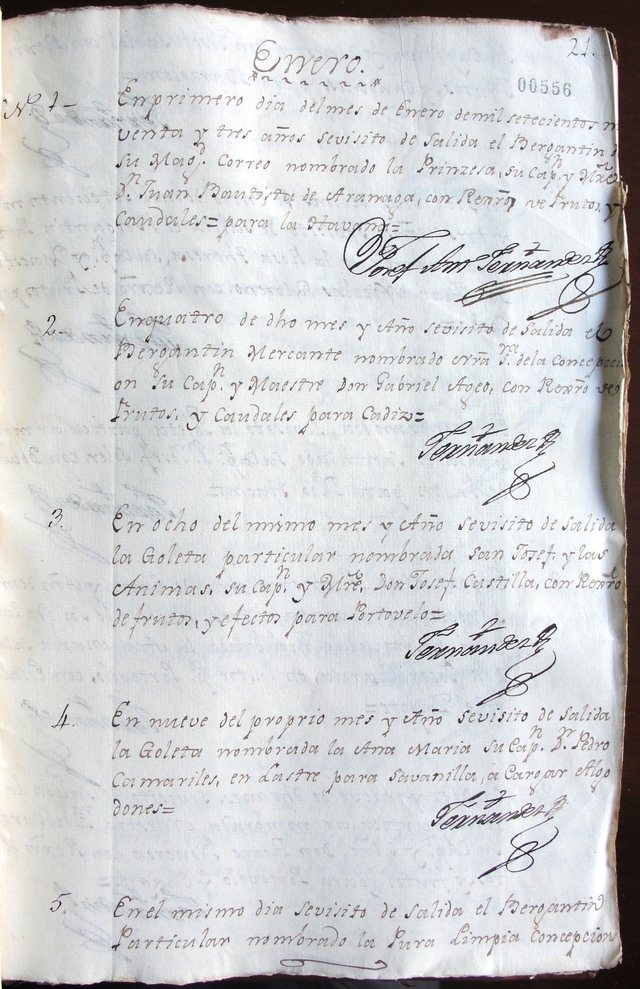 21.
Enero.
00556
Nº 1- En primero dia del mes de Enero demil setecientos n
venta y tres años sevisito de Salida el Bergantin d
su Magd. Correo nombrado la Prinzesa, su Capn. y Mre.
Dn. Juan Bautista de Aranaga, con Rexro. de frutos, y
Caudales= para la Havana=
Josef Anto. Fernandez
2. Enquatro de dho mes y Año sevisito de Salida el
Bergantin Mercante nombrado Nra. Sra. dela Concepci
on su Capn. y Maestre Don Gabriel Ageo, con Rexro de
frutos, y Caudales para Cadiz=
Fernandez
3. En ocho del mismo mes y Año sevisito de Salida
la Goleta particular nombrada San Josef y las
Animas, su Capn. y Mre. Don Josef Castilla, con Rexro
de frutos, y efectos para Portovelo=
Fernandez
4. En nueve del proprio mes y Año sevisito de Salida
la Goleta nombrada la Ana Maria su Capn. Dn. Pedro
Camariles, en Lastre para Savanilla, a Cargar Algo
dones=
Fernandez
5. Enel mismo dia sevisito de Salida el Bergantin
Particular nombrado la Pura Limpia Concepcion